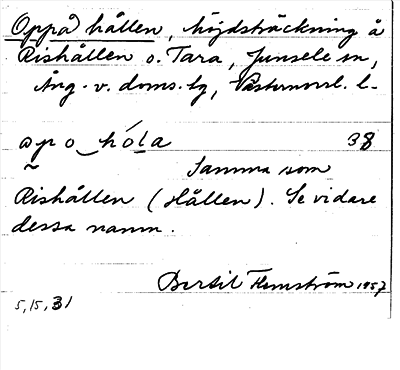 Oppå hållen, höjdsträckning å
Rishållen o. Tara, Junsele sn,
Ång. v. doms. lg, Västernorrl. l.
apo hóla 38
Samma som
Rishållen (Hållen). Se vidare
dessa namn.
Bertil Flemström 1957
5,15,31